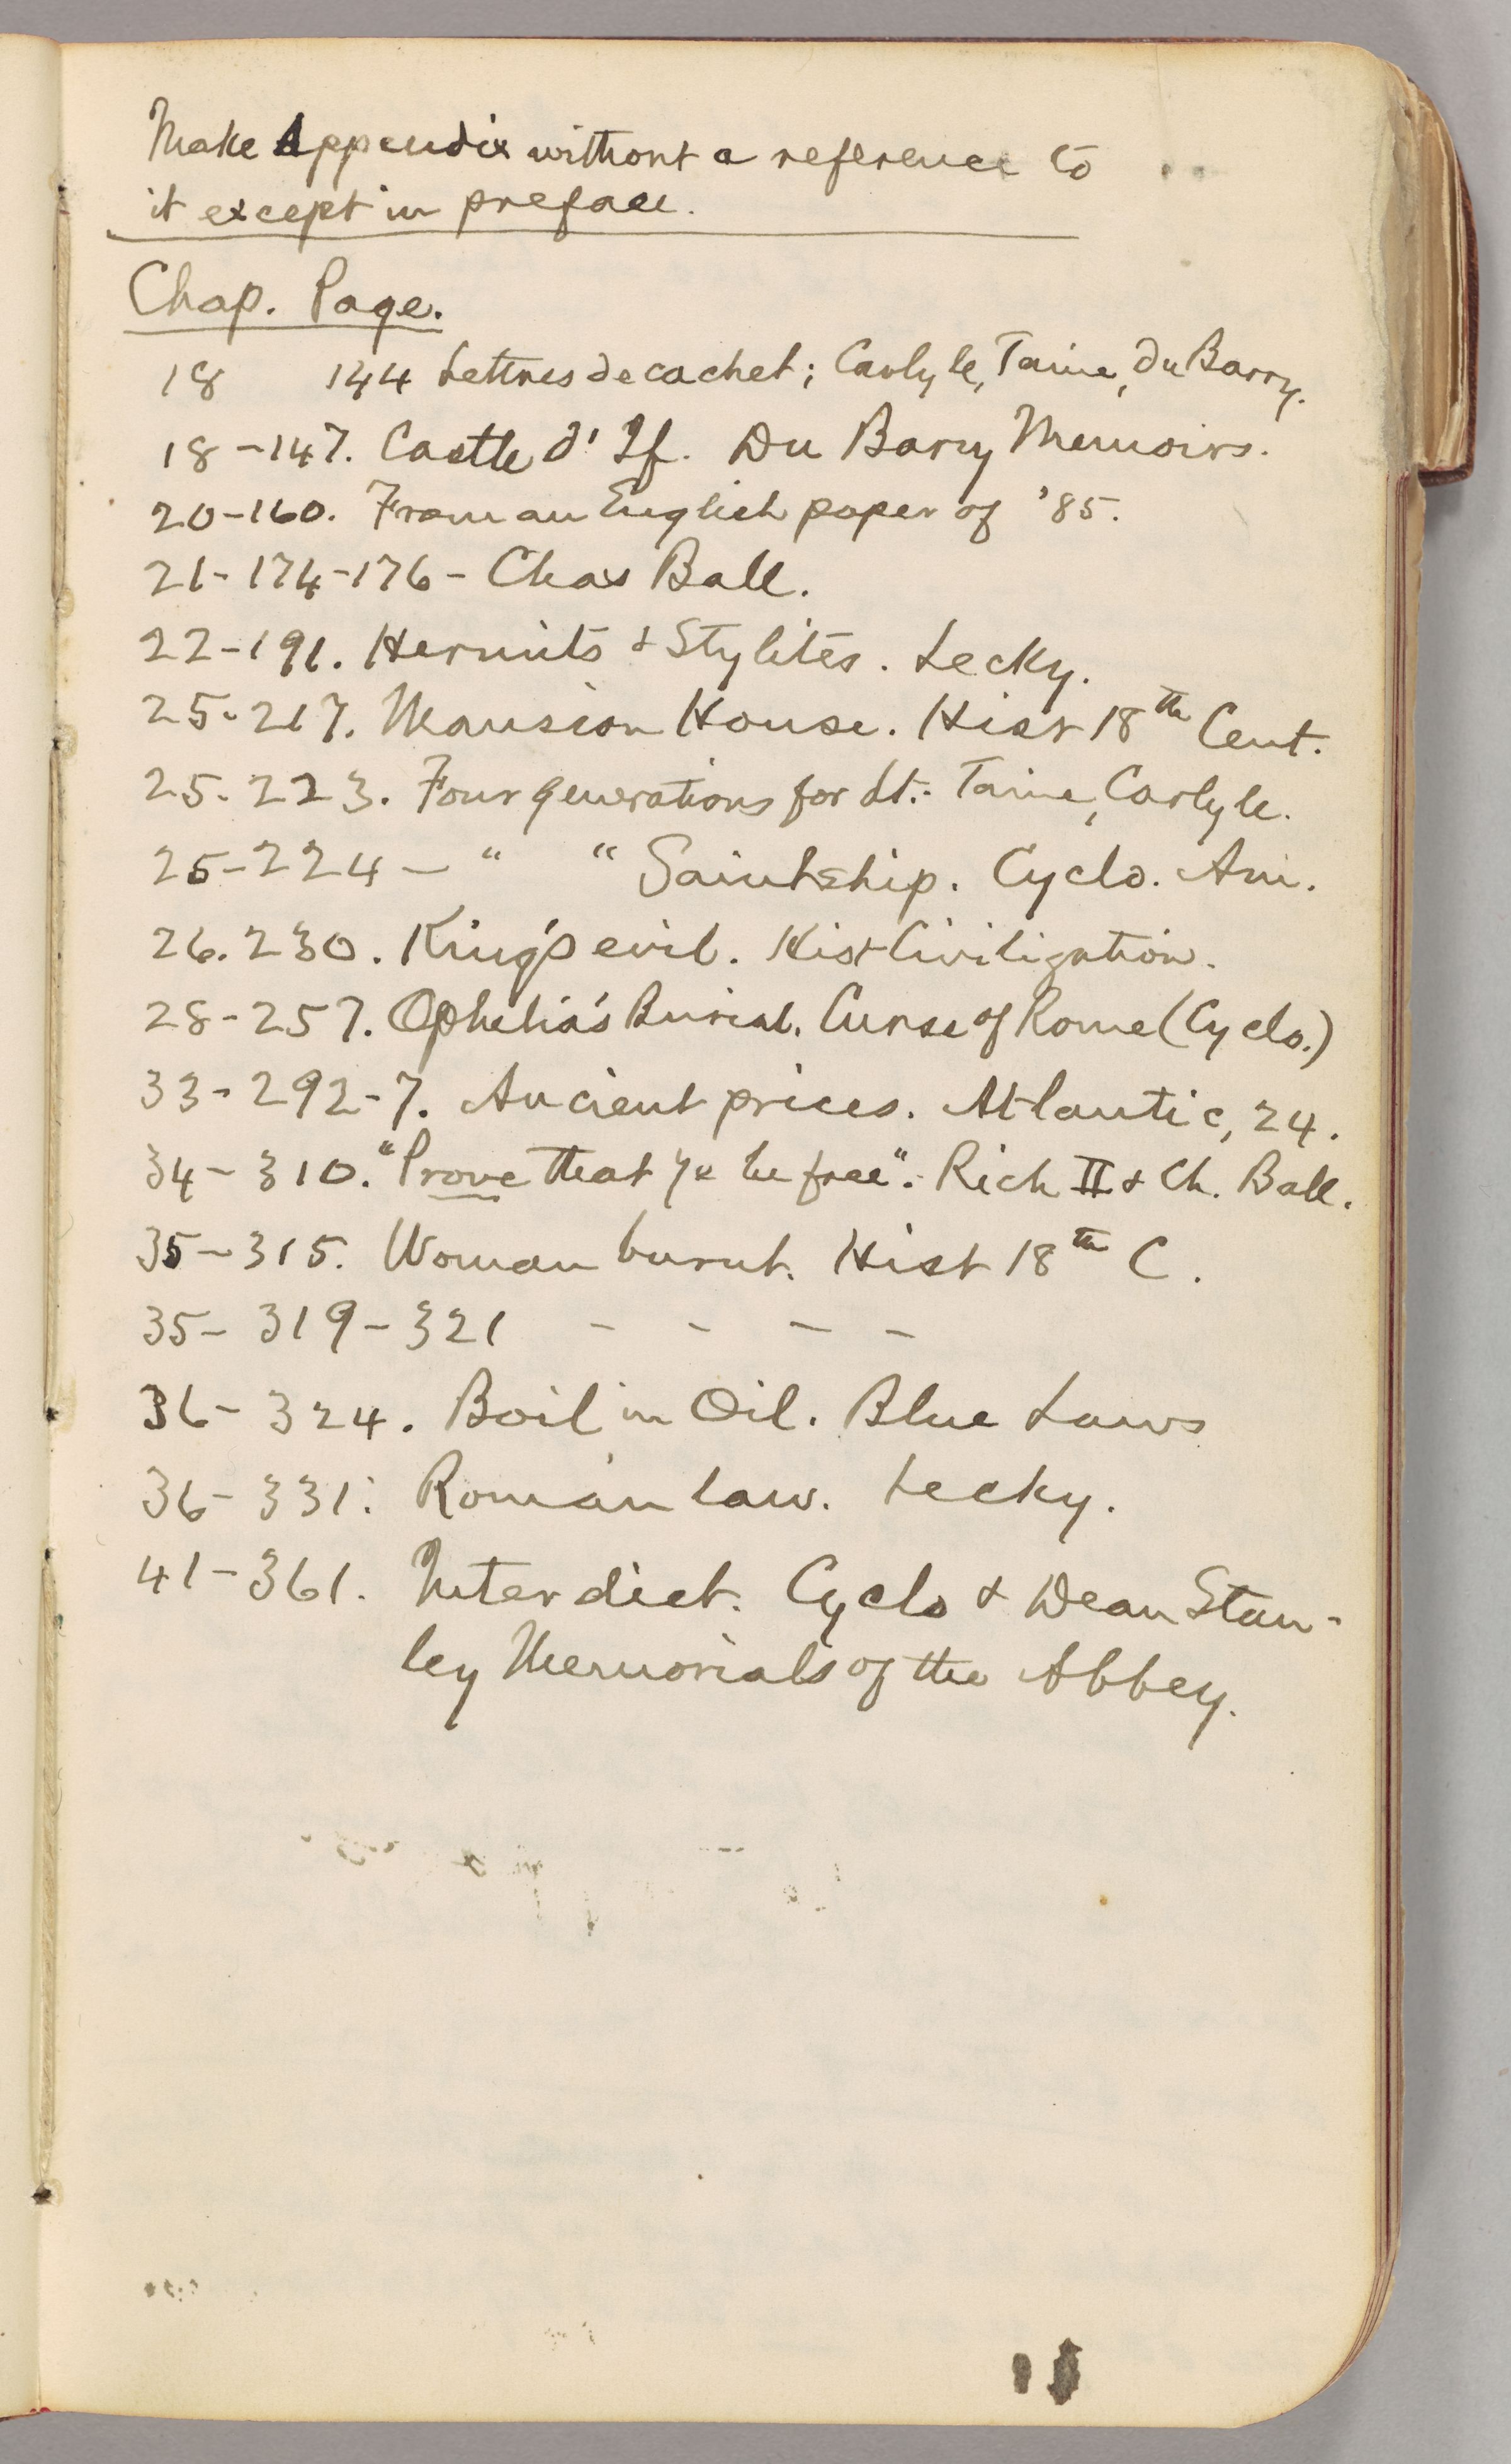 Make Appendix without a reference to
it except in preface.
Chap. Page.
18 144 Lettres de cachet; Carlyle, Taine, Du Barry.
18-147. Castle d'If. Du Barry Memoirs.
20-160. From an English paper of '85.
21-174-176- Chas Ball.
22-191. Hermits & Stylites. Lecky.
25-217. Mansion House. Hist 18th Cent.
25-223. Four generations for Lt.: Taine, Carlyle.
25-224- " " Saintship. Cyclo. Am.
26.230. King's evil. Hist Civilization.
28-257. Ophelia's Burial. Curse of Rome (Cyclo.)
33-292-7. Ancient prices. Atlantic, 24.
34-310. "Prove that ye be free". Rich II & Ch. Ball.
35-315. Woman burnt. Hist 18th C.
35-319-321 - - - -
36-324. Boil in Oil. Blue Laws
36-331. Roman law. Lecky.
41-361. Interdict. Cyclo & Dean Stan-
ley Memorials of the Abbey.